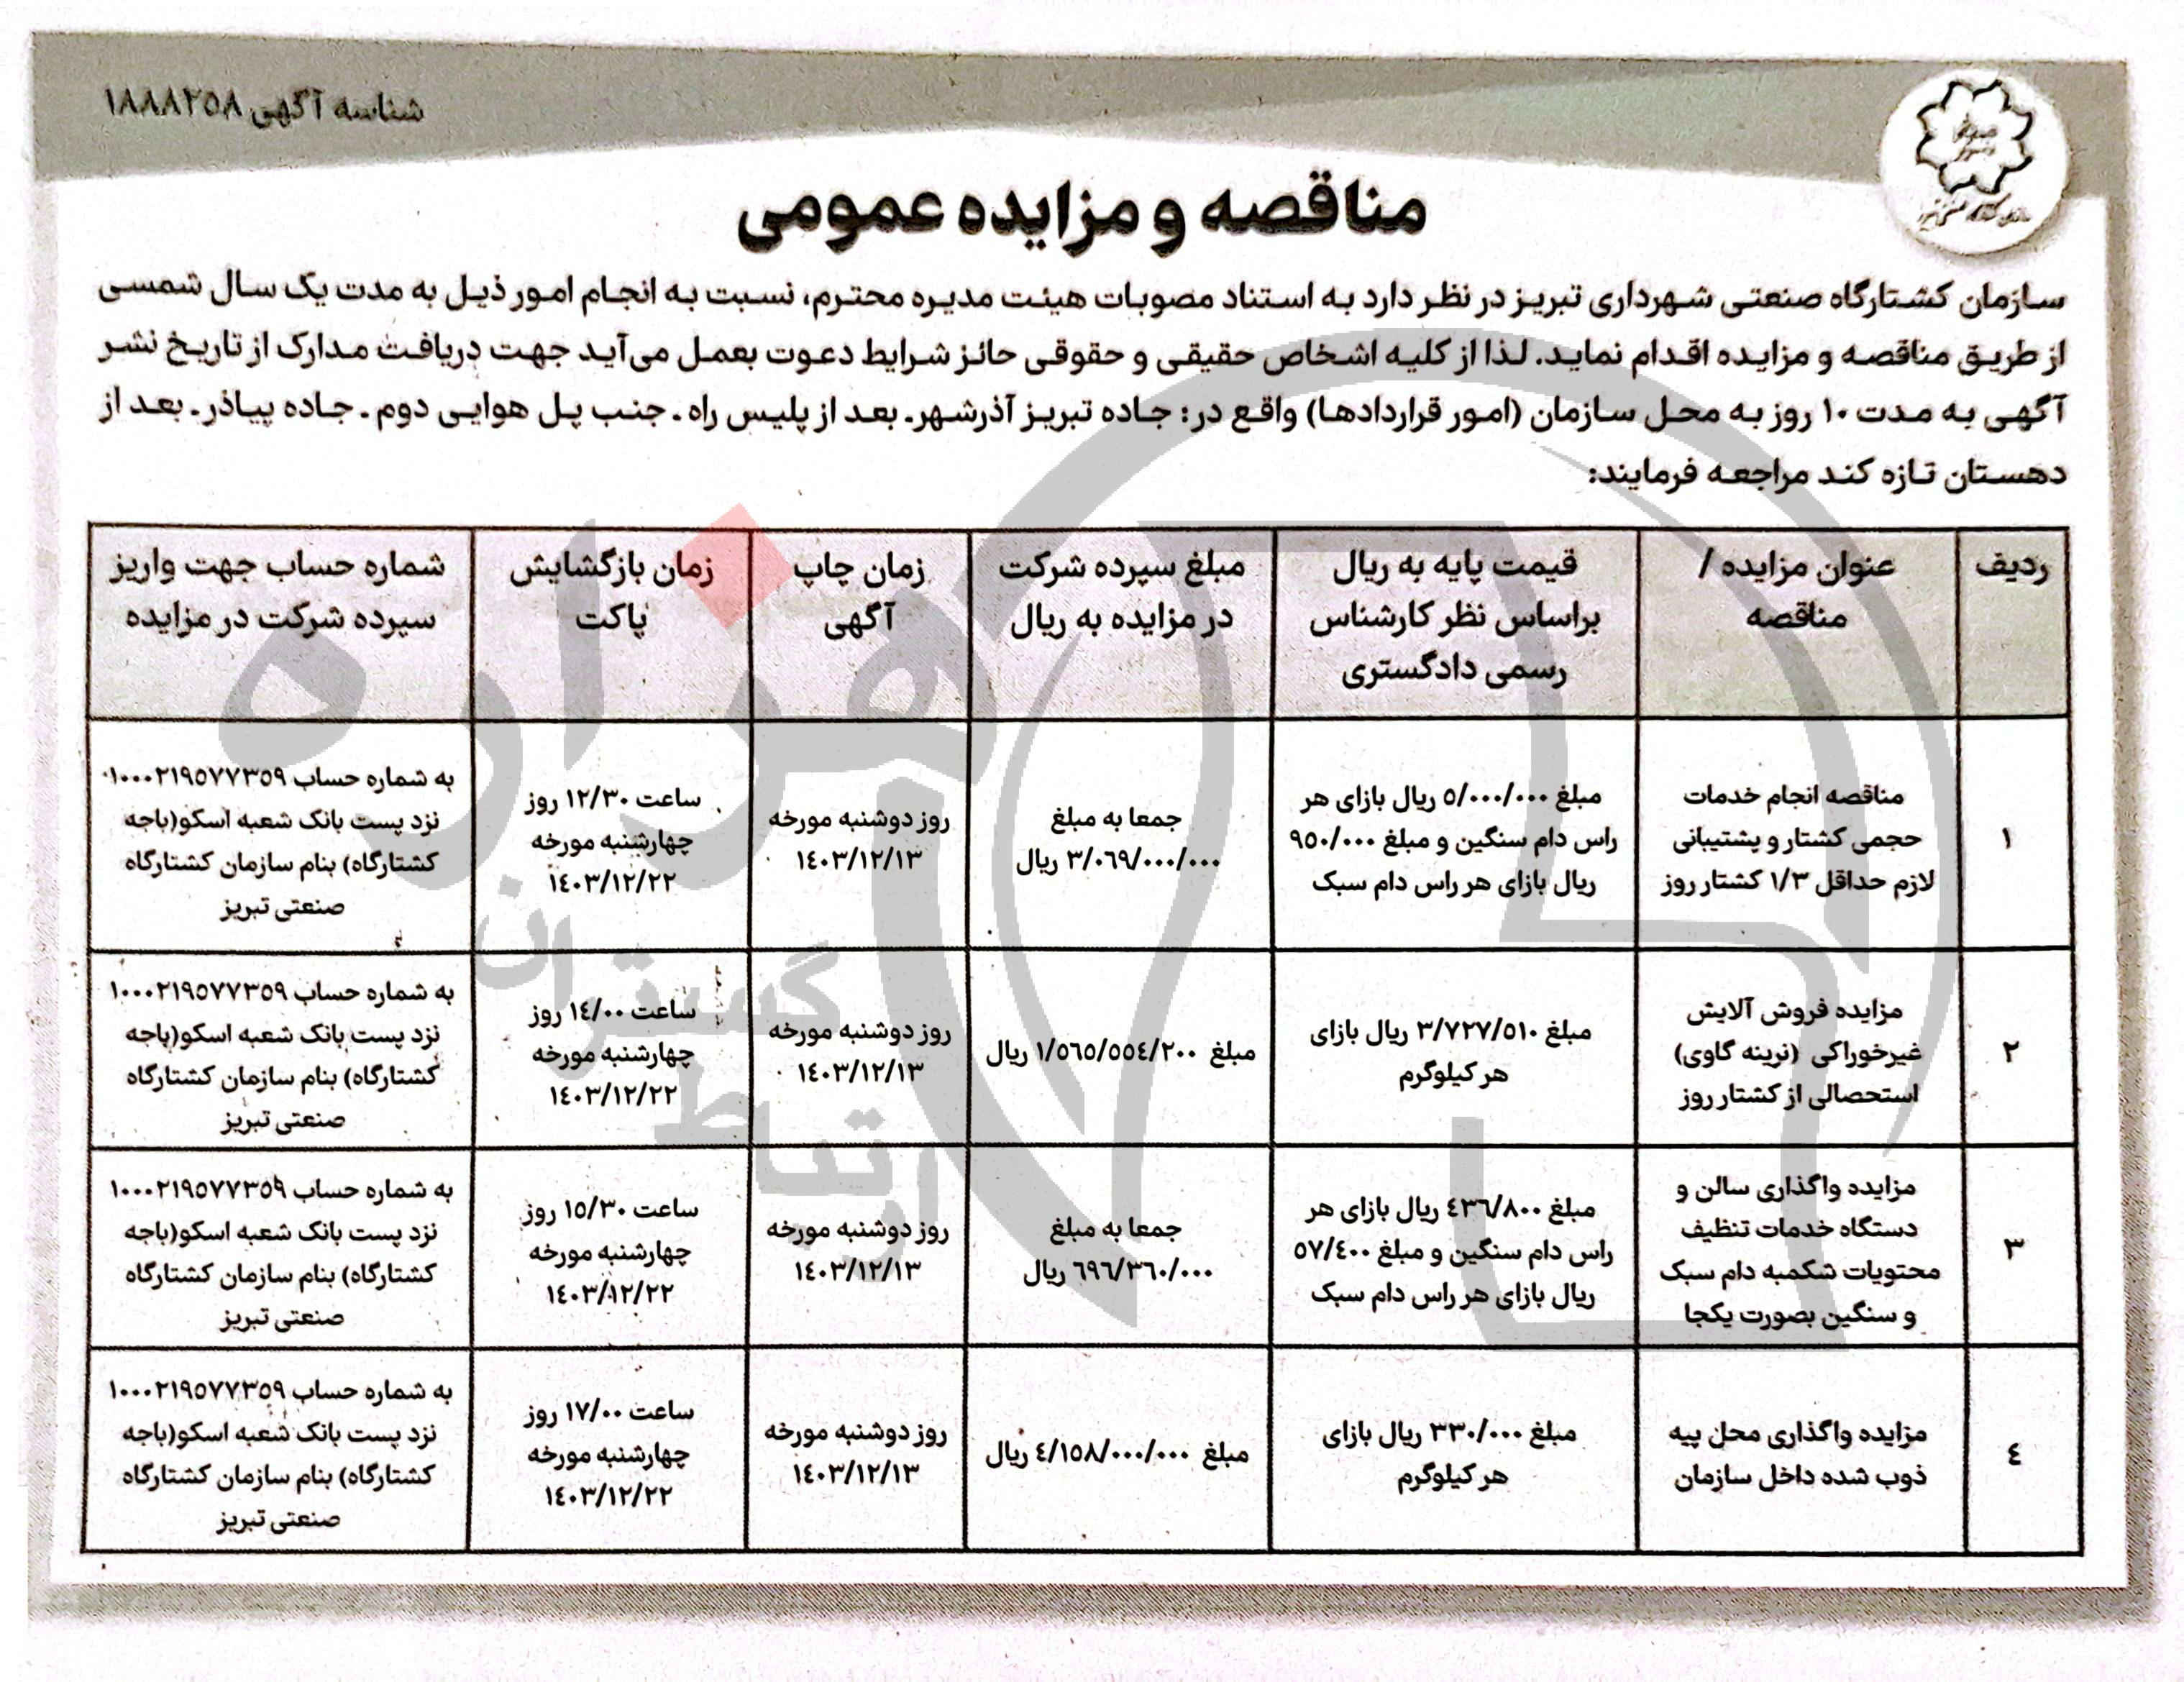 شناسه آگهی ۱۸۸۸۲۵۸
مناقصه و مزایده عمومی
سازمان کشتارگاه صنعتی شهرداری تبریز در نظر دارد به استناد مصوبات هیئت مدیره محترم، نسبت به انجام امور ذیل به مدت یک سال شمسی
از طریق مناقصه و مزایده اقدام نماید. لذا از کلیه اشخاص حقیقی و حقوقی حائز شرایط دعوت بعمل می‌آید جهت دریافت مدارک از تاریخ نشر
آگهی به مدت ۱۰ روز به محل سازمان (امور قراردادها) واقع در: جاده تبریز آذرشهر. بعد از پلیس راه. جنب پل هوایی دوم. جاده پیاذر. بعد از
دهستان تازه کند مراجعه فرمایند:
ردیف
عنوان مزایده /
مناقصه
قیمت پایه به ریال
براساس نظر کارشناس
رسمی دادگستری
مبلغ سپرده شرکت
در مزایده به ریال
زمان چاپ
آگهی
زمان بازگشایش
پاکت
شماره حساب جهت واریز
سپرده شرکت در مزایده
۱
مناقصه انجام خدمات
حجمی کشتار و پشتیبانی
لازم حداقل ۱/۳ کشتار روز
مبلغ ۵/۰۰۰/۰۰۰ ریال بازای هر
راس دام سنگین و مبلغ ۹۵۰/۰۰۰
ریال بازای هر راس دام سبک
جمعا به مبلغ
۳/۰۶۹/۰۰۰/۰۰۰ ریال
روز دوشنبه مورخه
۱٤۰۳/۱۲/۱۳
ساعت ۱۲/۳۰ روز
چهارشنبه مورخه
۱٤۰۳/۱۲/۲۲
به شماره حساب ۱۰۰۰۲۱۹۵۷۷۳۵۹
نزد پست بانک شعبه اسکو(باجه
کشتارگاه) بنام سازمان کشتارگاه
صنعتی تبریز
۲
مزایده فروش آلایش
غیرخوراکی (نرینه گاوی)
استحصالی از کشتار روز
مبلغ ۳/۷۲۷/۵۱۰ ریال بازای
هر کیلوگرم
مبلغ ۱/۵٦۵/۵۵٤/۲۰۰ ریال
روز دوشنبه مورخه
۱٤۰۳/۱۲/۱۳
ساعت ۱٤/۰۰ روز
چهارشنبه مورخه
۱٤۰۳/۱۲/۲۲
به شماره حساب ۱۰۰۰۲۱۹۵۷۷۳۵۹
نزد پست بانک شعبه اسکو(باجه
کشتارگاه) بنام سازمان کشتارگاه
صنعتی تبریز
۳
مزایده واگذاری سالن و
دستگاه خدمات تنظیف
محتویات شکمبه دام سبک
و سنگین بصورت یکجا
مبلغ ٤۳٦/۸۰۰ ریال بازای هر
راس دام سنگین و مبلغ ۵۷/٤۰۰
ریال بازای هر راس دام سبک
جمعا به مبلغ
٦۹٦/۳٦۰/۰۰۰ ریال
روز دوشنبه مورخه
۱٤۰۳/۱۲/۱۳
ساعت ۱۵/۳۰ روز
چهارشنبه مورخه
۱٤۰۳/۱۲/۲۲
به شماره حساب ۱۰۰۰۲۱۹۵۷۷۳۵۹
نزد پست بانک شعبه اسکو(باجه
کشتارگاه) بنام سازمان کشتارگاه
صنعتی تبریز
٤
مزایده واگذاری محل پیه
ذوب شده داخل سازمان
مبلغ ۳۳۰/۰۰۰ ریال بازای
هر کیلوگرم
مبلغ ٤/۱۵۸/۰۰۰/۰۰۰ ریال
روز دوشنبه مورخه
۱٤۰۳/۱۲/۱۳
ساعت ۱۷/۰۰ روز
چهارشنبه مورخه
۱٤۰۳/۱۲/۲۲
به شماره حساب ۱۰۰۰۲۱۹۵۷۷۳۵۹
نزد پست بانک شعبه اسکو(باجه
کشتارگاه) بنام سازمان کشتارگاه
صنعتی تبریز
هزاره
گستران
ارتباط